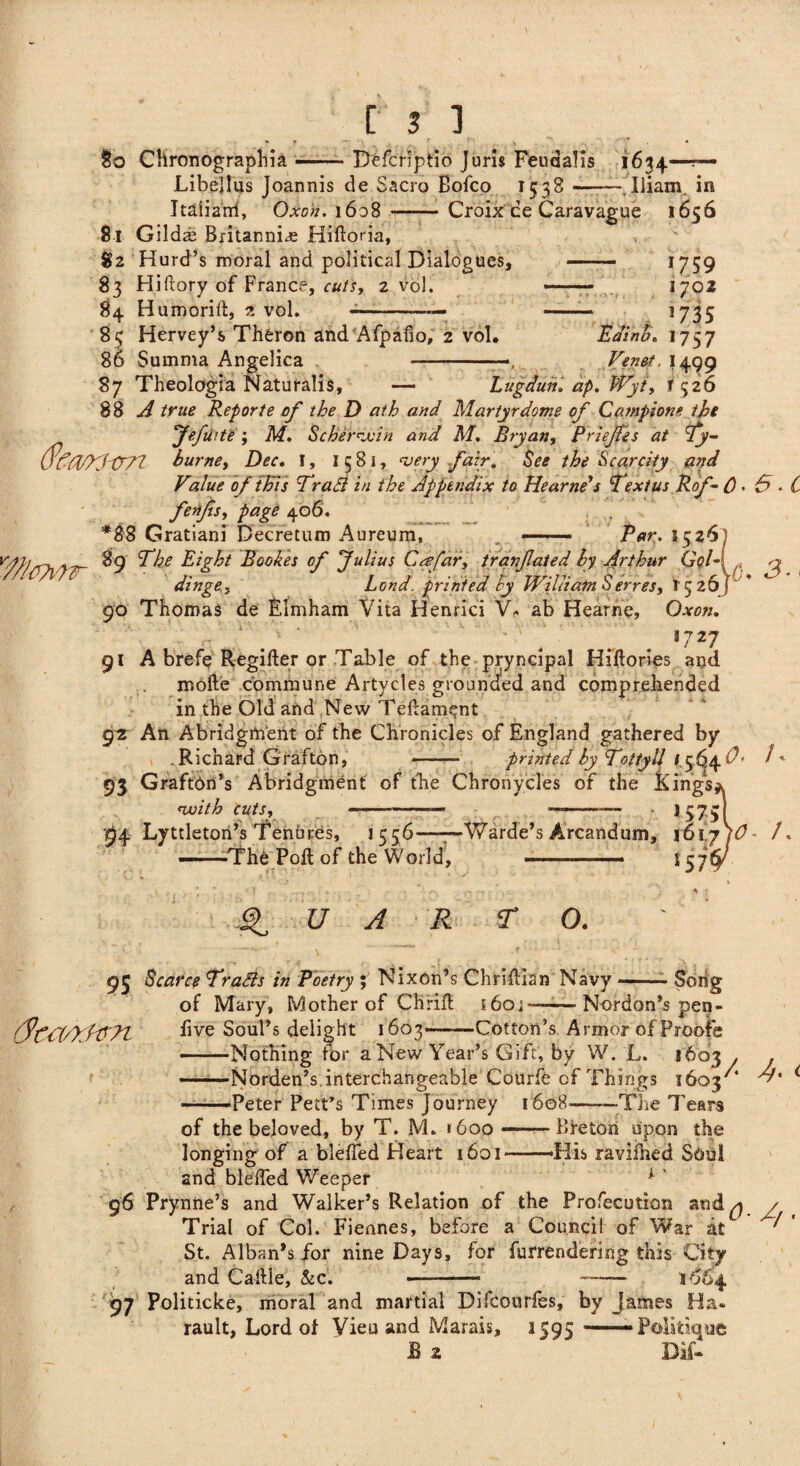 [ 3 ]
80 Chronographia —— Deſcriptio Juris Feudalis 1634 ——
Libellus Joannis de Sacro Boſco 1538 —— Iliam in
Italiam, Oxon. 1608 —— Croix de Caravague 1656
81 Gildæ Britanniæ Hiſtoria,
82 Hurd's moral and political Dialogues, —— 1759
83 Hiſtory of France, cuts, 2 vol. —— 1702
84 Humoriſt, 2 vol. —— —— 1735
85 Hervey's Theron and Aſpaſio, 2 vol. Edinb. 1757
86 Summa Angelica ——, Venet. 1499
87 Theologia Naturalis, — Lugdun. ap. Wyt, 1526
88 A true Reporte of the D ath and Martyrdome of Campione the
Jeſuite; M. Scherwin and M. Bryan, Prieſtes at Ty-
Pearson burne, Dec. 1, 1581, very fair. See the Scarcity and
Value of this Tract in the Appendix to Hearne's Textus Roſ- 0 . 5 .
fenſis, page 406.
*88 Gratiani Decretum Aureum, —— Par. 1526
89 The Eight Bookes of Julius Cæſar, tranſlated by Arthur Gol-
dinge, Lond. printed by William Serres, 1526 0 . 3 .
90 Thomas de Elmham Vita Henrici V. ab Hearne, Oxon.
1727
91 A brefe Regiſter or Table of the pryncipal Hiſtories and
moſte commune Artycles grounded and comprehended
in the Old and New Teſtament
92 An Abridgment of the Chronicles of England gathered by
Richard Grafton, —— printed by Tottyll 1564 0 . 1 .
93 Grafton's Abridgment of the Chronycles of the Kings,
with cuts, —— —— 1575
94 Lyttleton's Tenures, 1556 —— Warde's Arcandum, 1617 0 . 1 .
—— The Poſt of the World, —— 1576
QUARTO.
95 Scarce Tracts in Poetry; Nixon's Chriſtian Navy —— Song
of Mary, Mother of Chriſt 1601 —— Nordon's pen-
Pearson ſive Soul's delight 1603 —— Cotton's Armor of Proofe
—— Nothing for a New Year's Gift, by W. L. 1603
—— Norden's interchangeable Courſe of Things 1603 4 .
—— Peter Pett's Times Journey 1608 —— The Tears
of the beloved, by T. M. 1600 —— Breton upon the
longing of a bleſſed Heart 1601 —— His raviſhed Soul
and bleſſed Weeper
96 Prynne's and Walker's Relation of the Proſecution and
Trial of Col. Fiennes, before a Council of War at 0 . 4 .
St. Alban's for nine Days, for ſurrendering this City
and Caſtle, &c. —— —— 1664
97 Politicke, moral and martial Diſcourſes, by James Ha-
rault, Lord of Vieu and Marais, 1595 —— Politique
B 2 Diſ-